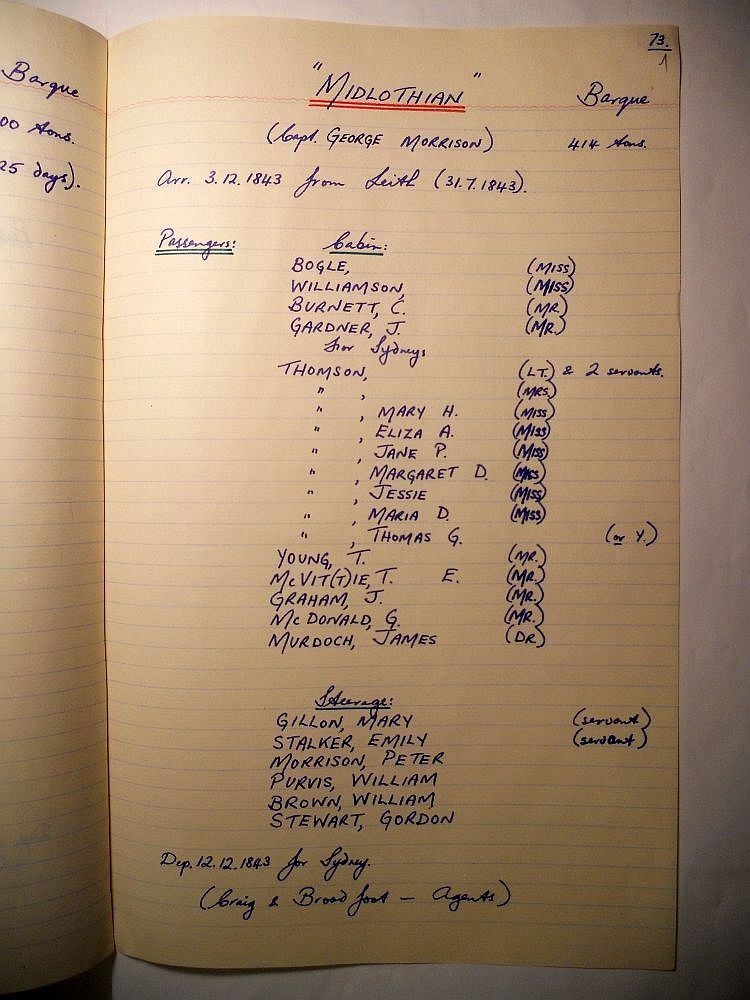 Barque
00 tons.
25 days).
73.
1
"MIDLOTHIAN" Barque
(Capt. GEORGE MORRISON) 414 tons.
Arr. 3.12.1843 from Leith (31.7.1843).
Passengers: Cabin:
BOGLE, (MISS)
WILLIAMSON, (MISS)
BURNETT, C. (MR.)
GARDNER, J. (MR.)
For Sydney:
THOMSON, (LT.) & 2 servants.
" , (MRS.)
" , MARY H. (MISS)
" , ELIZA A. (MISS)
" , JANE P. (MISS)
" , MARGARET D. (MISS)
" , JESSIE (MISS)
" , MARIA D. (MISS)
" , THOMAS G. (or Y.)
YOUNG, T. (MR.)
McVIT(T)IE, T. E. (MR.)
GRAHAM, J. (MR.)
McDONALD, G. (MR.)
MURDOCH, JAMES (DR.)
Steerage:
GILLON, MARY (servant)
STALKER, EMILY (servant)
MORRISON, PETER
PURVIS, WILLIAM
BROWN, WILLIAM
STEWART, GORDON
Dep. 12.12.1843 for Sydney.
(Craig & Broadfoot - Agents)